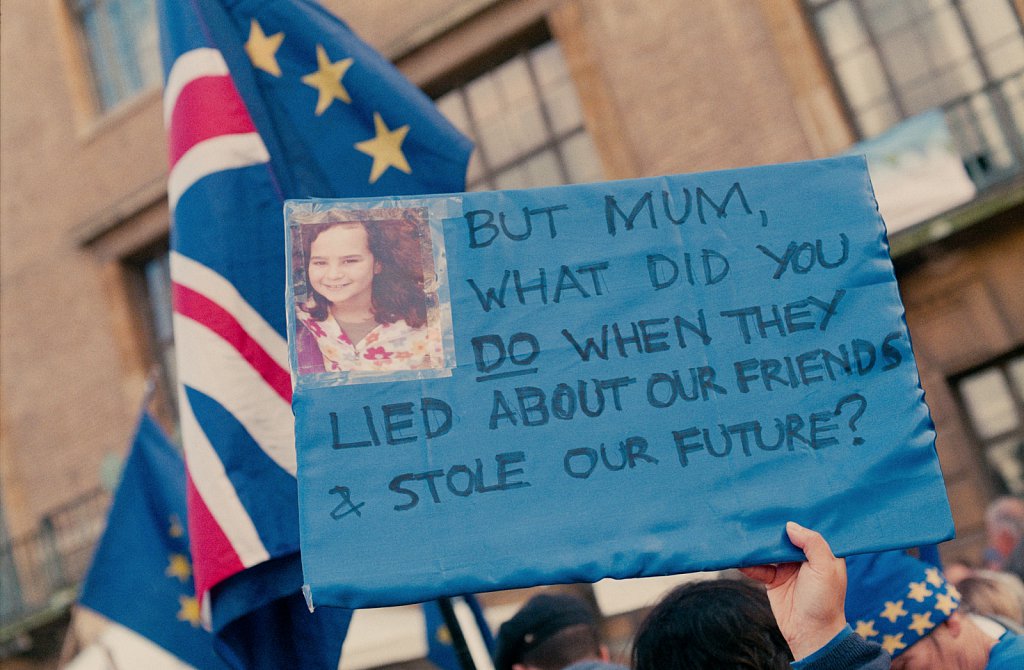 BUT MUM,
WHAT DID YOU
DO WHEN THEY
LIED ABOUT OUR FRIENDS
& STOLE OUR FUTURE?